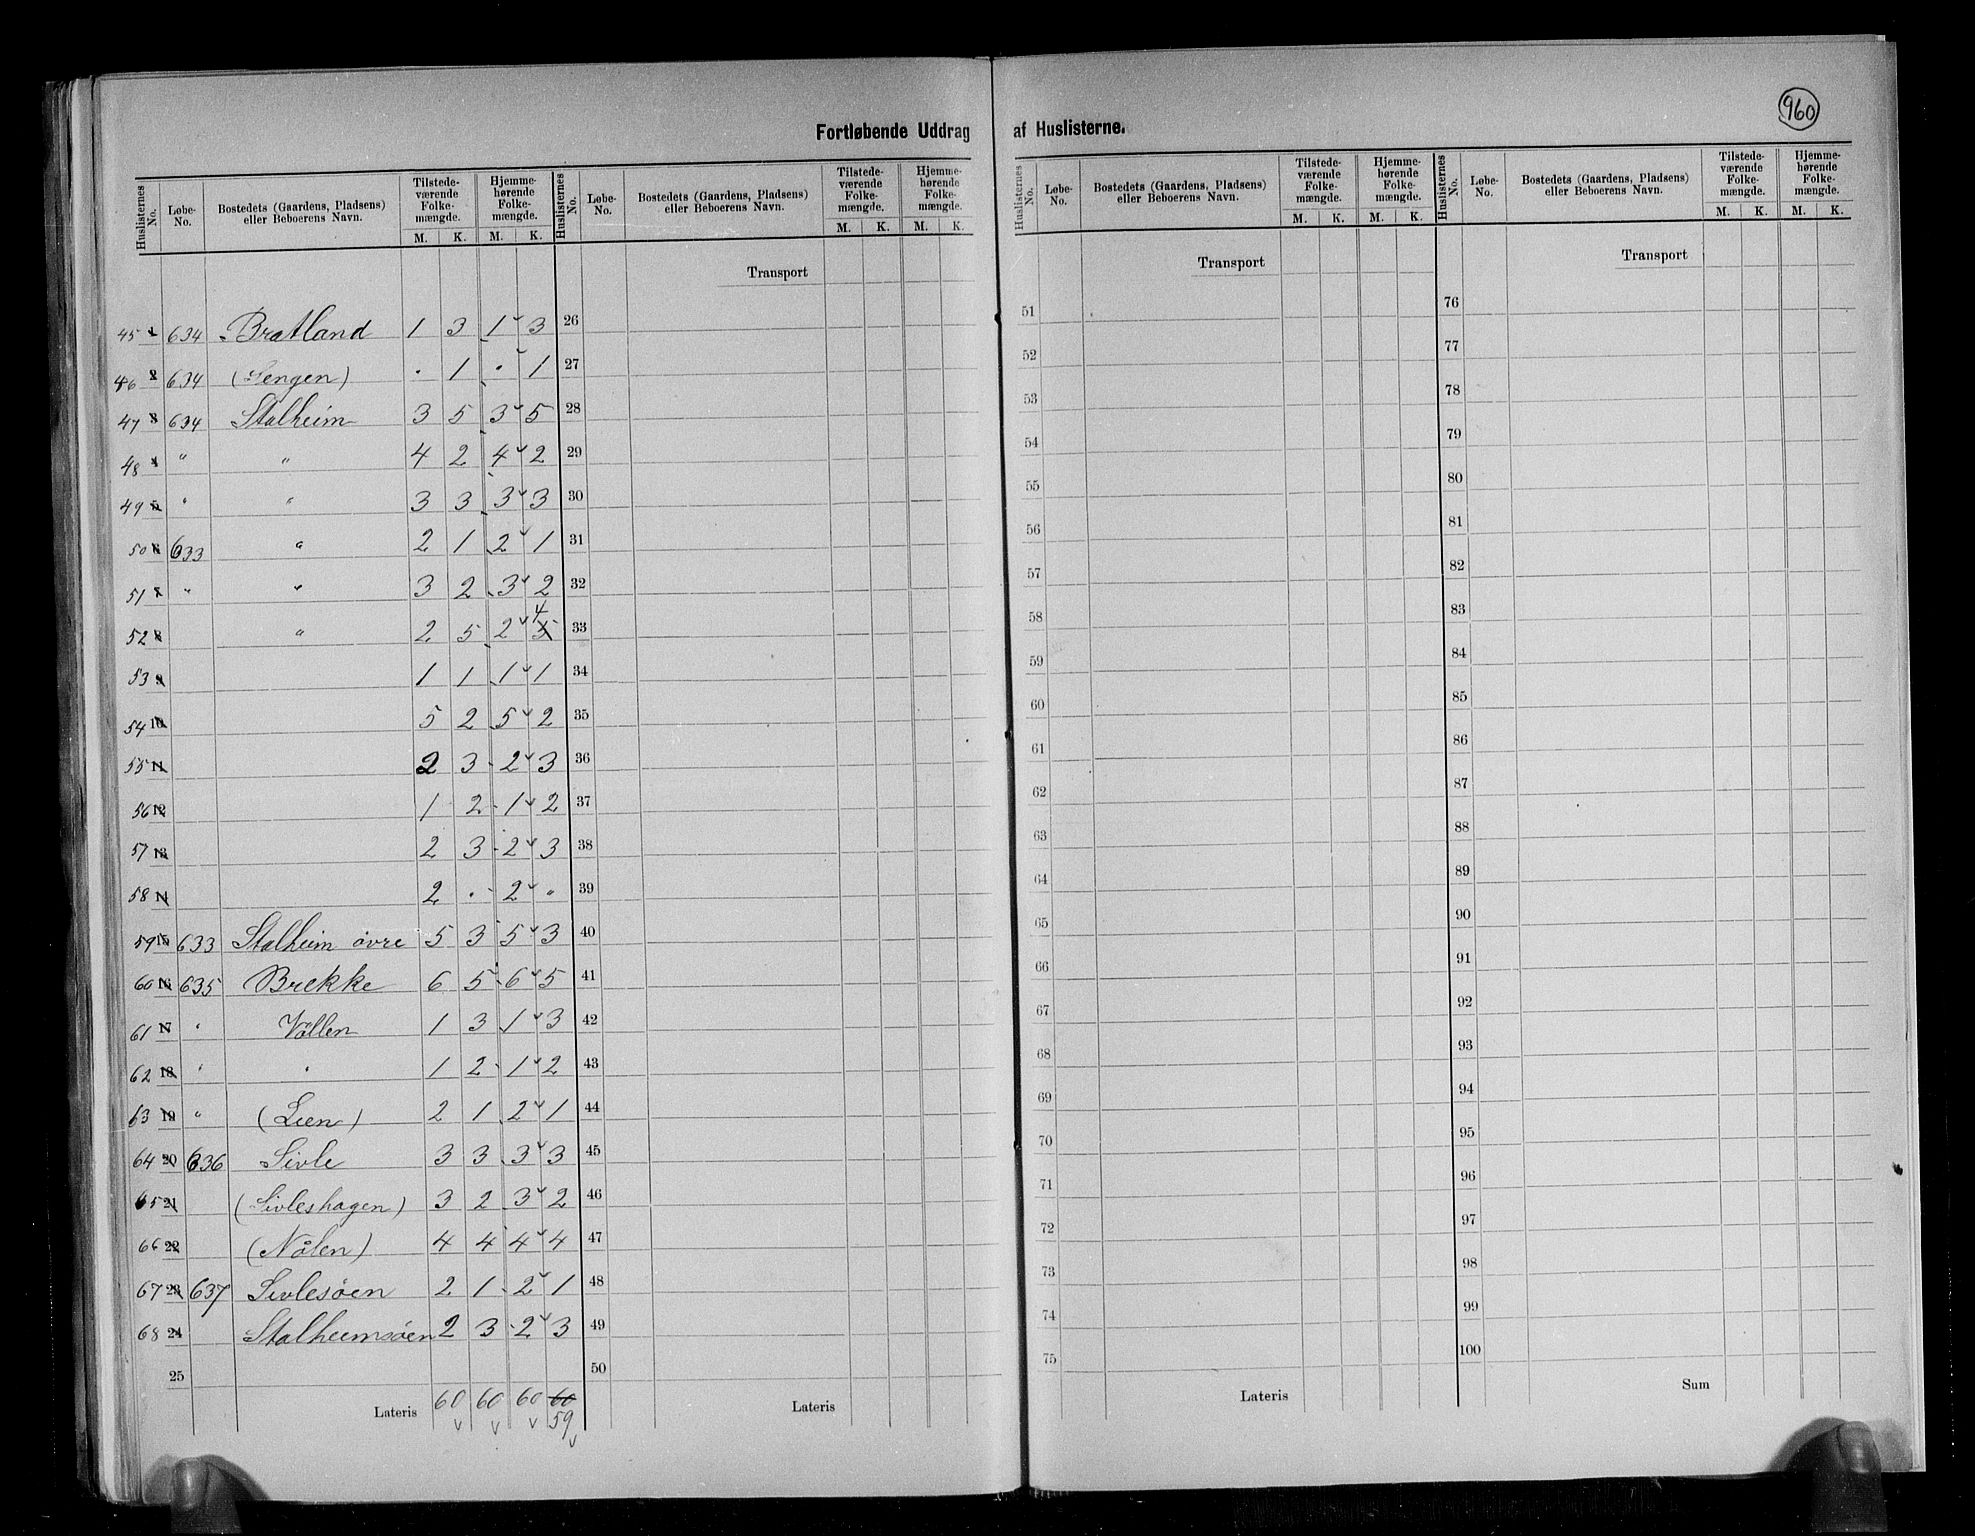 960
Fortløbende Uddrag af Huslisterne.
Huslisternes No. Løbe-No. Bostedets (Gaardens, Pladsens) eller Beboerens Navn. Tilstedeværende Folkemængde. M. K. Hjemmehørende Folkemængde. M. K.
Huslisternes No. Løbe-No. Bostedets (Gaardens, Pladsens) eller Beboerens Navn. Tilstedeværende Folkemængde. M. K. Hjemmehørende Folkemængde. M. K.
Huslisternes No. Løbe-No. Bostedets (Gaardens, Pladsens) eller Beboerens Navn. Tilstedeværende Folkemængde. M. K. Hjemmehørende Folkemængde. M. K.
Huslisternes No. Løbe-No. Bostedets (Gaardens, Pladsens) eller Beboerens Navn. Tilstedeværende Folkemængde. M. K. Hjemmehørende Folkemængde. M. K.
45 1 634 Bratland 1 3 1 3
46 2 634 (Sengen) . 1 . 1
47 3 634 Stalheim 3 5 3 5
48 4 " " 4 2 4 2
49 5 " " 3 3 3 3
50 6 633 " 2 1 2 1
51 7 " " 3 2 3 2
52 8 " 2 5 2 5 4
53 9 1 1 1 1
54 10 5 2 5 2
55 11 2 3 2 3
56 12 1 2 1 2
57 13 2 3 2 3
58 14 2 . 2 "
59 15 633 Stalheim øvre 5 3 5 3
60 16 635 Brekke 6 5 6 5
61 17 " Vøllen 1 3 1 3
62 18 " " 1 2 1 2
63 19 " (Lien) 2 1 2 1
64 20 636 Sivle 3 3 3 3
65 21 (Sivleshagen) 3 2 3 2
66 22 (Nålen) 4 4 4 4
67 23 637 Sivlesøen 2 1 2 1
68 24 Stalheimsøen 2 3 2 3
25
Lateris 60 60 60 60
59
Transport
26
27
28
29
30
31
32
33
34
35
36
37
38
39
40
41
42
43
44
45
46
47
48
49
50
Lateris
Transport
51
52
53
54
55
56
57
58
59
60
61
62
63
64
65
66
67
68
69
70
71
72
73
74
75
Lateris
Transport
76
77
78
79
80
81
82
83
84
85
86
87
88
89
90
91
92
93
94
95
96
97
98
99
100
Sum